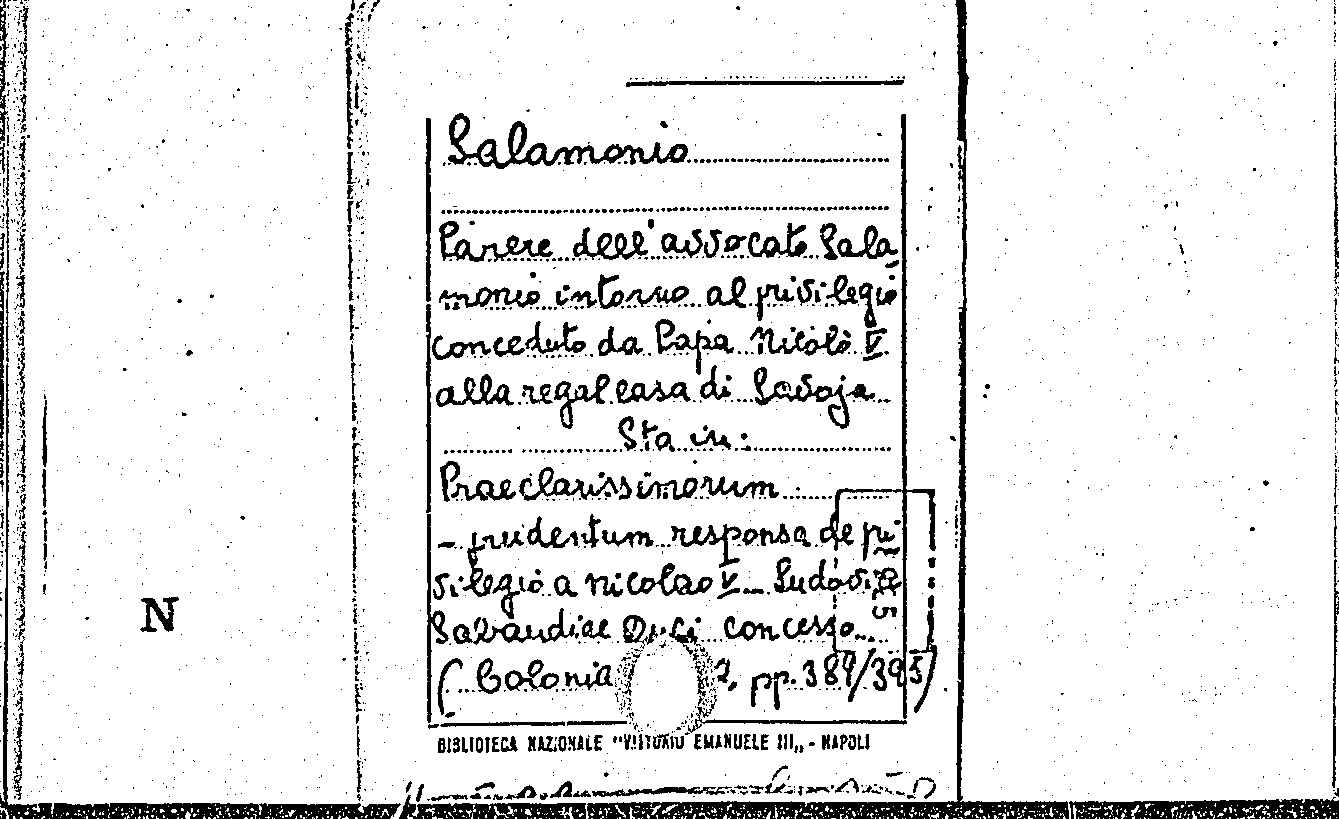 Salamonio
Parere dell'avvocato Sala-
monio intorno al privilegio
conceduto da Papa Nicolò V
alla regal casa di Savoja
Sta in:
Praeclarissimorum
- prudentum responsa de pri-
vilegio a Nicolao V Ludovico
Sabaudiae Duci concesso
N
(Colonia 2, pp. 389/395)
BIBLIOTECA NAZIONALE "VITTORIO EMANUELE III" - NAPOLI